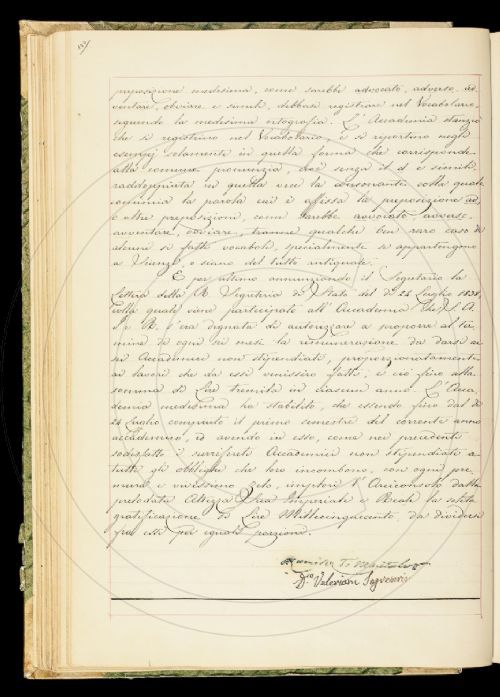 preposizione medesima, come sarebbe advocato, adverso, ad-
ventare, obviare e simili, debbasi registrare nel Vocabolario,
seguendo la medesima ortografia. L'Accademia stanziò
che si registrino nel Vocabolario, e si riportino negli
esempj solamente in quella forma che corrisponde
alla comune pronunzia, cioè senza il d e simili,
raddoppiata in quella vece la consonante colla quale
comincia la parola cui è affissa la preposizione ad,
e altre preposizioni, come sarebbe avvocato, avverso,
avventare, ovviare, tranne qualche ben raro caso di
alcuni sì fatti vocaboli, specialmente se appartengono
a Scienze, o siano del tutto antiquate.
E per ultimo annunziando il Segretario la
Lettera della R. Segreteria di Stato del dì 24 Luglio 1838,
colla quale viene participato all'Accademia che S. A.
I. e R. s'era degnata di autorizzare a proporre al ter-
mine di ogni sei mesi la remunerazione da darsi a-
gli Accademici non stipendiati, proporzionatamente
ai lavori che da essi venissero fatti, e ciò fino alla
somma di Lire tremila in ciascun anno. L'Acca-
demia medesima ha stabilito, che essendo fino dal dì
24 Luglio compiuto il primo semestre del corrente anno
accademico, ed avendo in esso, come nei precedenti
sodisfatto i surriferiti Accademici non stipendiati a
tutti gli obblighi che loro incombono, con ogni pre-
mura e vivissimo zelo, impetri l'Arciconsolo dalla
prelodata Altezza Sua Imperiale e Reale la solita
gratificazione di Lire Millecinquecento, da dividersi
fra essi per eguale porzione.
Segretario